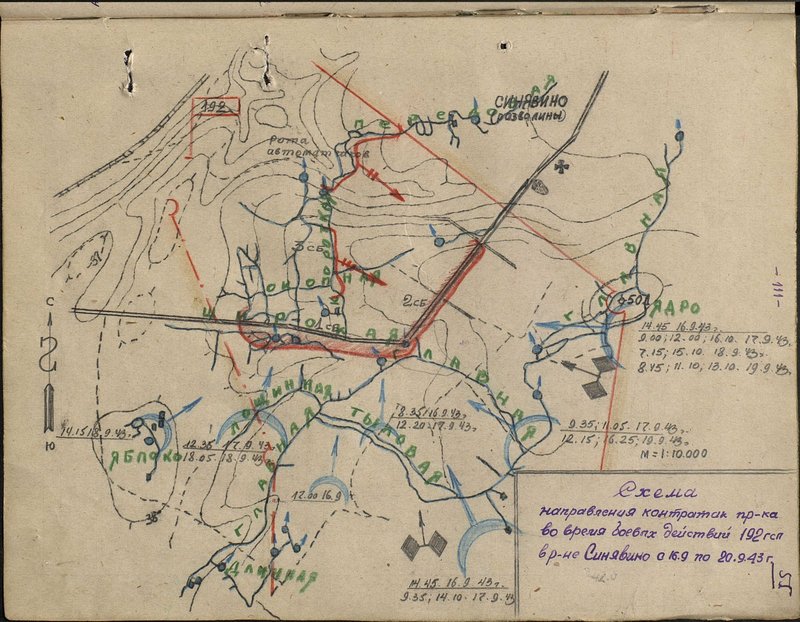 192
СИНЯВИНО
(развалины)
ПЕРЕДОВАЯ
рота
автоматчиков
КОРОТКАЯ
3 сб
2 сб
1 сб
ШИРОКАЯ
ГЛАВНАЯ
ЯДРО
50.1
14.45 16.9.43г.
9.00; 12.00; 16.10. 17.9.43.
7.15; 15.10. 18.9.43г.
8.45; 11.10; 13.10. 19.9.43г.
С
Ю
ГЛАВНАЯ
ЛОЩИННАЯ
ТЫЛОВАЯ
8.35 16.9.43г.
12.20 17.9.43г.
9.35; 11.05. 17.9.43г.
12.15; 16.25; 19.9.43г.
М=1:10.000
14.15 18.9.43г.
ЯБЛОКО
12.35 17.9.43
18.05 18.9.43г.
12.00 16.9
ГЛАВНАЯ
ДЛИННАЯ
14.45 16.9.43г.
9.35; 14.10. 17.9.43
Схема
направления контратак пр-ка
во время боевых действий 192 гсп
в р-не Синявино с 16.9 по 20.9.43г.
-111-